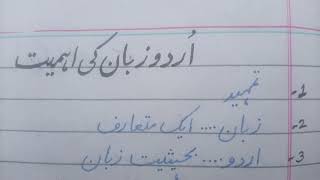 اُردو زبان کی اہمیت
1- تمہید
2- زبان .... ایک متعارف
3- اردو .... بحیثیت زبان